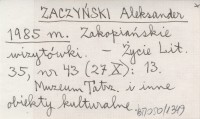 ZACZYŃSKI Aleksander
1985 m. Zakopiańskie
wizytówki. – Życie Lit.
35, nr 43 (27 X): 13.
Muzeum Tatrz. i inne
obiekty kulturalne.